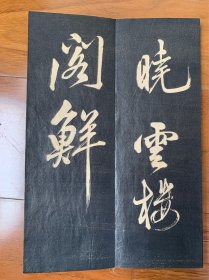 晓雲楼
阁鲜